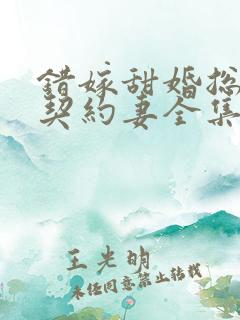 錯嫁甜婚总
契約妻全集
王光明
未经同意禁止转载